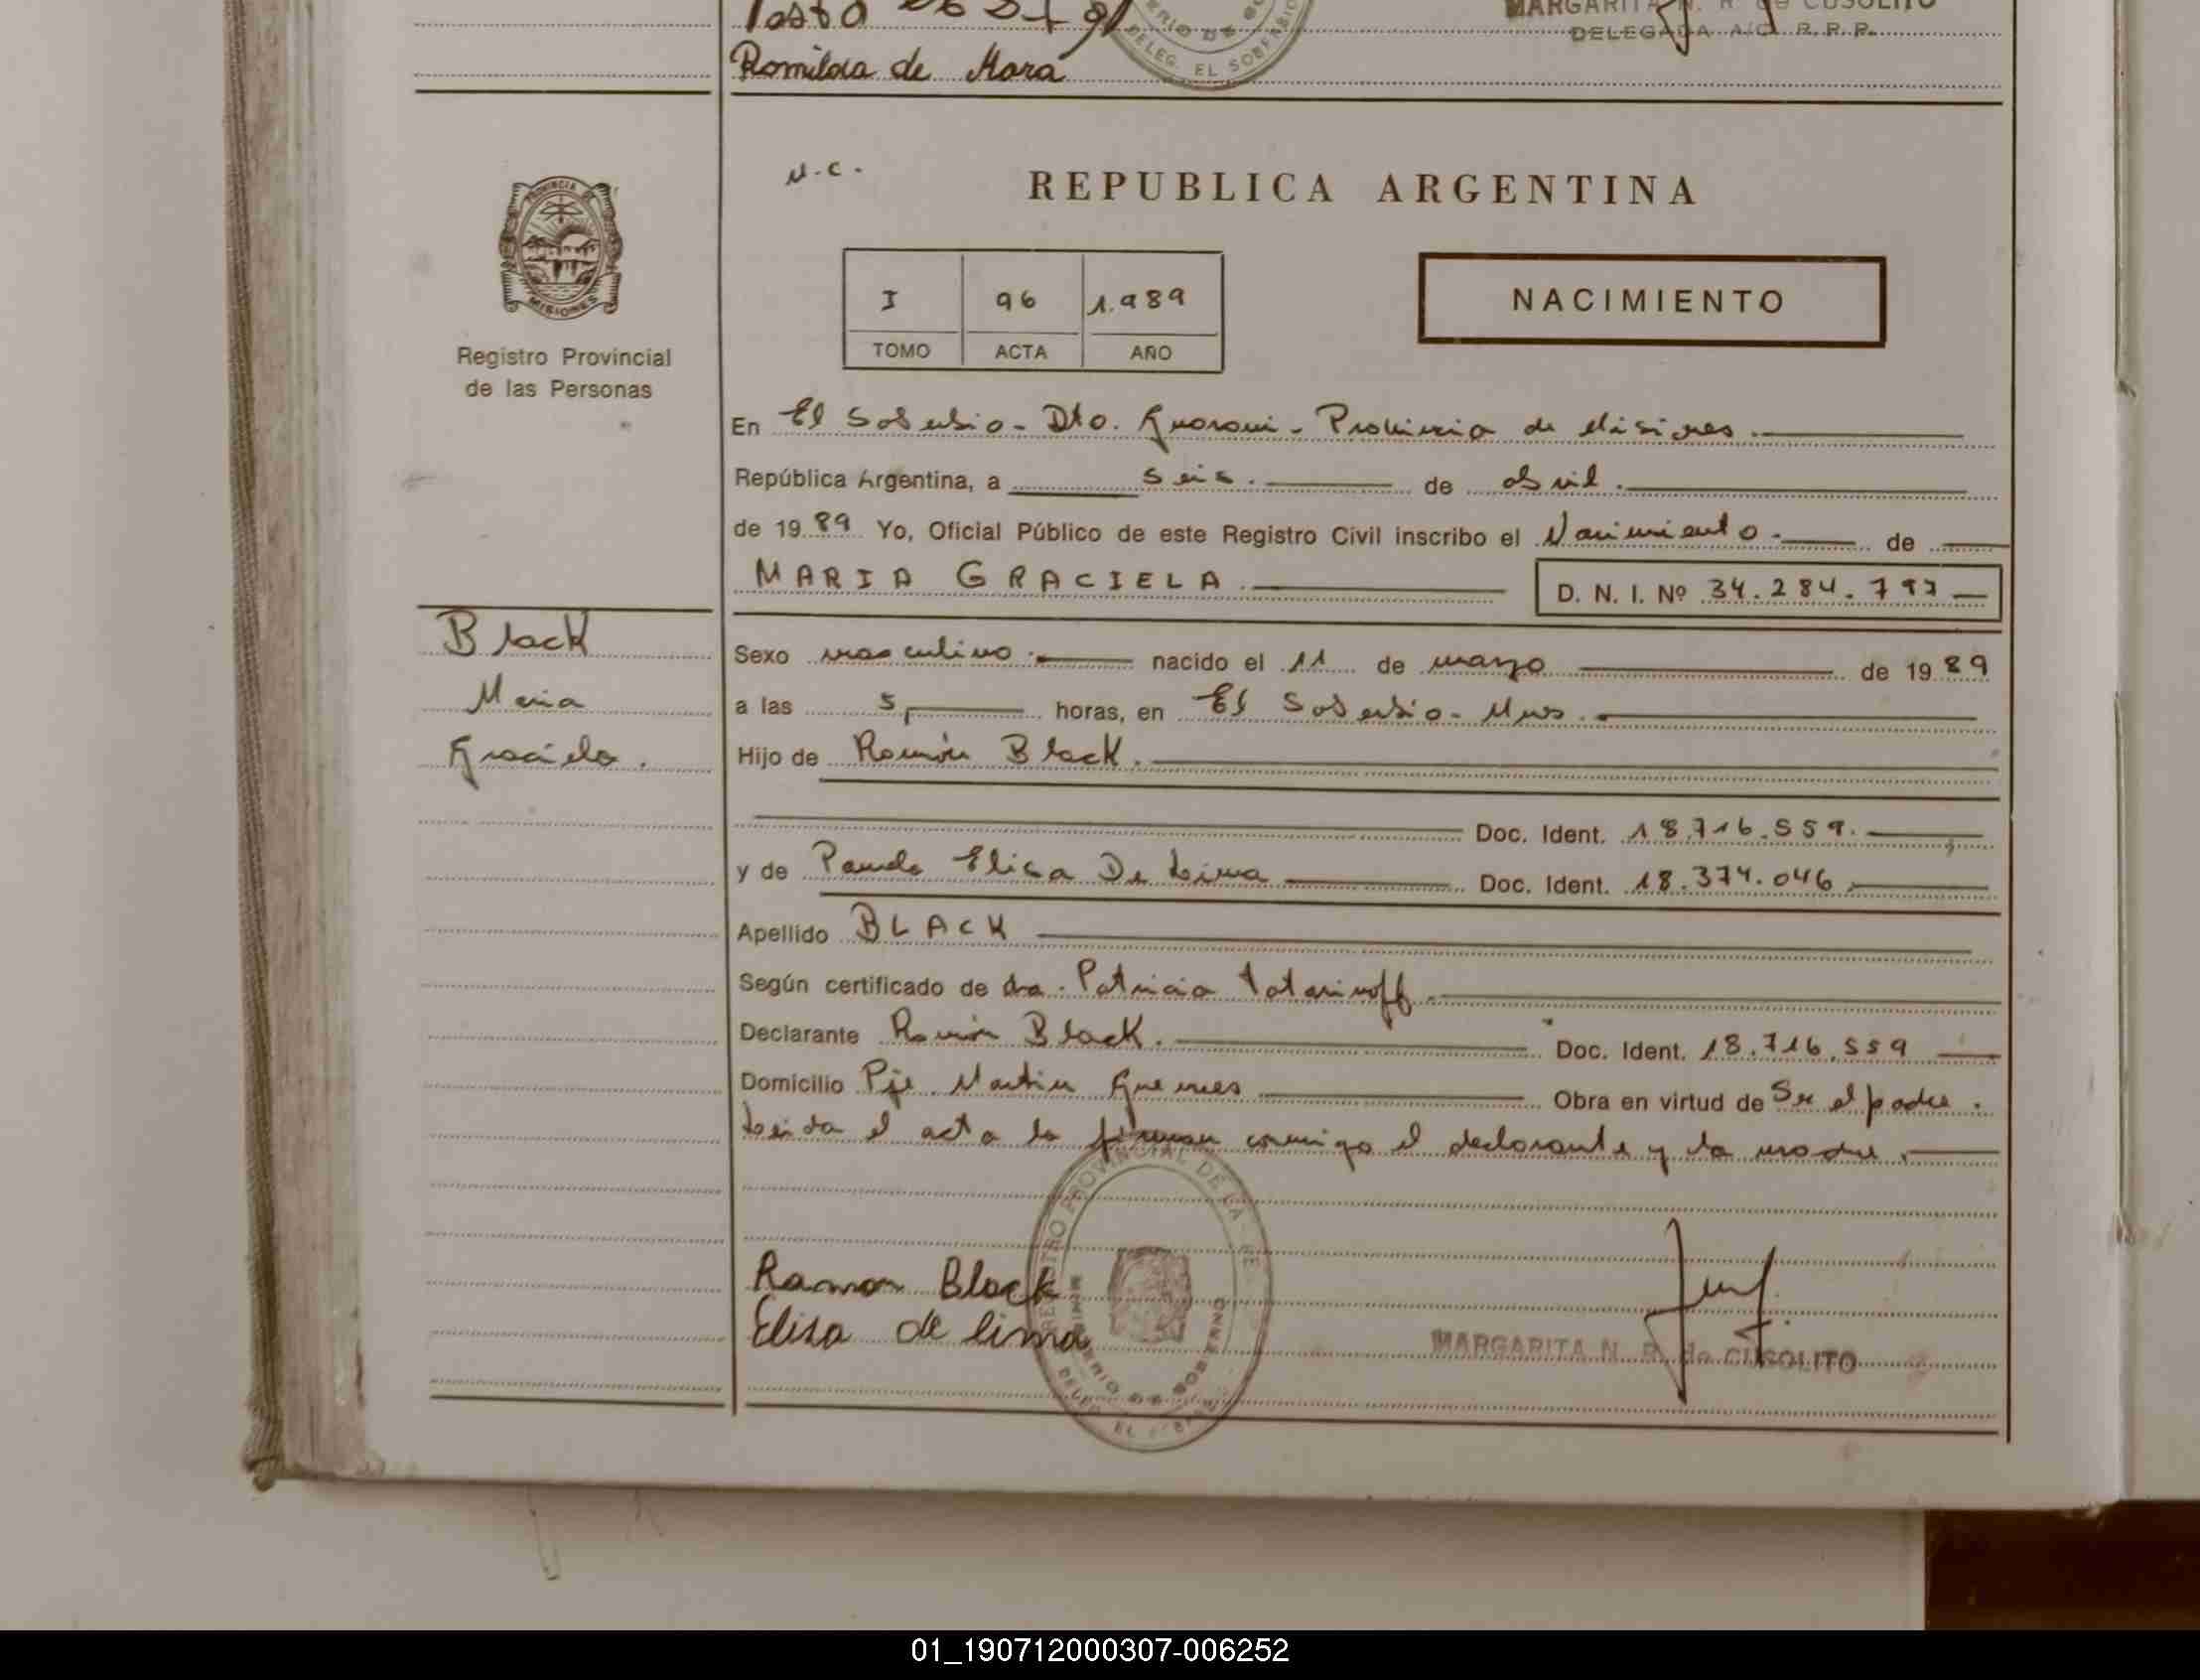 Romilda de Mora
MARGARITA N. R. de CUSOLITO
DELEGADA A/C. R.P.P.
DELEG. EL SOBERBIO
PROVINCIA
MISIONES
Registro Provincial
de las Personas
REPUBLICA ARGENTINA
I 96 1.989
TOMO ACTA AÑO
NACIMIENTO
En El Soberbio - Dto. Guarani - Provincia de Misiones.
República Argentina, a seis. de abril.
de 1989 Yo, Oficial Público de este Registro Civil inscribo el Nacimiento. de
MARIA GRACIELA. D. N. I. Nº 34.284.797
Black
Maria
Graciela.
Sexo masculino. nacido el 11 de marzo de 1989
a las 5, horas, en El Soberbio - Mnes.
Hijo de Ramón Black.
Doc. Ident. 18.716.559.
y de Elisa De Lima Doc. Ident. 18.374.046
Apellido BLACK
Según certificado de dra. Patricia Tatarinoff.
Declarante Ramón Black. Doc. Ident. 18.716.559
Domicilio Pje. Martin Guemes Obra en virtud de Ser el padre.
Leida el acta la firman conmigo el declarante y la madre.
REGISTRO PROVINCIAL DE LA
Ramon Black
Elisa de lima
MINISTERIO DE GOBIERNO
DELEG. EL SOBERBIO
MARGARITA N. R. de CUSOLITO
01_190712000307-006252